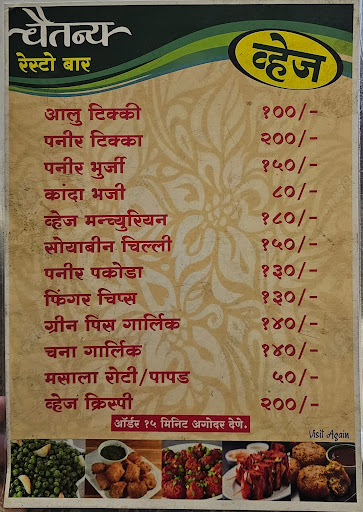 चैतन्य
रेस्टो बार
व्हेज
आलु टिक्की १००/-
पनीर टिक्का २००/-
पनीर भुर्जी १५०/-
कांदा भजी ८०/-
व्हेज मन्च्युरियन १८०/-
सोयाबीन चिल्ली १५०/-
पनीर पकोडा १३०/-
फिंगर चिप्स १३०/-
ग्रीन पिस गार्लिक १४०/-
चना गार्लिक १४०/-
मसाला रोटी/पापड ५०/-
व्हेज क्रिस्पी २००/-
ऑर्डर १५ मिनिट अगोदर देणे.
Visit Again